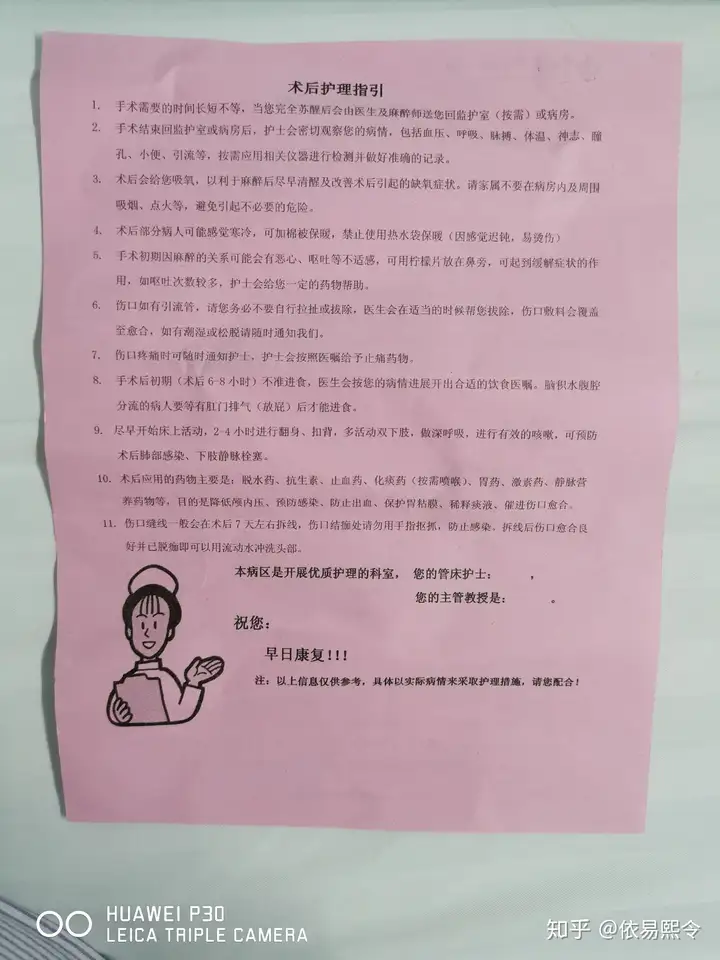 术后护理指引
1. 手术需要的时间长短不等，当您完全苏醒后会由医生及麻醉师送您回监护室（按需）或病房。
2. 手术结束回监护室或病房后，护士会密切观察您的病情，包括血压、呼吸、脉搏、体温、神志、瞳
孔、小便、引流等，按需应用相关仪器进行检测并做好准确的记录。
3. 术后会给您吸氧，以利于麻醉后尽早清醒及改善术后引起的缺氧症状。请家属不要在病房内及周围
吸烟、点火等，避免引起不必要的危险。
4. 术后部分病人可能感觉寒冷，可加棉被保暖，禁止使用热水袋保暖（因感觉迟钝，易烫伤）
5. 手术初期因麻醉的关系可能会有恶心、呕吐等不适感，可用柠檬片放在鼻旁，可起到缓解症状的作
用，如呕吐次数较多，护士会给您一定的药物帮助。
6. 伤口如有引流管，请您务必不要自行拉扯或拔除，医生会在适当的时候帮您拔除，伤口敷料会覆盖
至愈合，如有潮湿或松脱请随时通知我们。
7. 伤口疼痛时可随时通知护士，护士会按照医嘱给予止痛药物。
8. 手术后初期（术后 6-8 小时）不准进食，医生会按您的病情进展开出合适的饮食医嘱。脑积水腹腔
分流的病人要等有肛门排气（放屁）后才能进食。
9. 尽早开始床上活动，2-4 小时进行翻身、扣背，多活动双下肢，做深呼吸，进行有效的咳嗽，可预防
术后肺部感染、下肢静脉栓塞。
10. 术后应用的药物主要是：脱水药、抗生素、止血药、化痰药（按需喷喉）、胃药、激素药、静脉营
养药物等，目的是降低颅内压、预防感染、防止出血、保护胃粘膜、稀释痰液、催进伤口愈合。
11. 伤口缝线一般会在术后 7 天左右拆线，伤口结痂处请勿用手指抠抓，防止感染。拆线后伤口愈合良
好并已脱痂即可以用流动水冲洗头部。
本病区是开展优质护理的科室， 您的管床护士： ，
您的主管教授是： 。
祝您：
早日康复!!!
注：以上信息仅供参考，具体以实际病情来采取护理措施，请您配合！
HUAWEI P30
LEICA TRIPLE CAMERA
知乎 @依易熙令